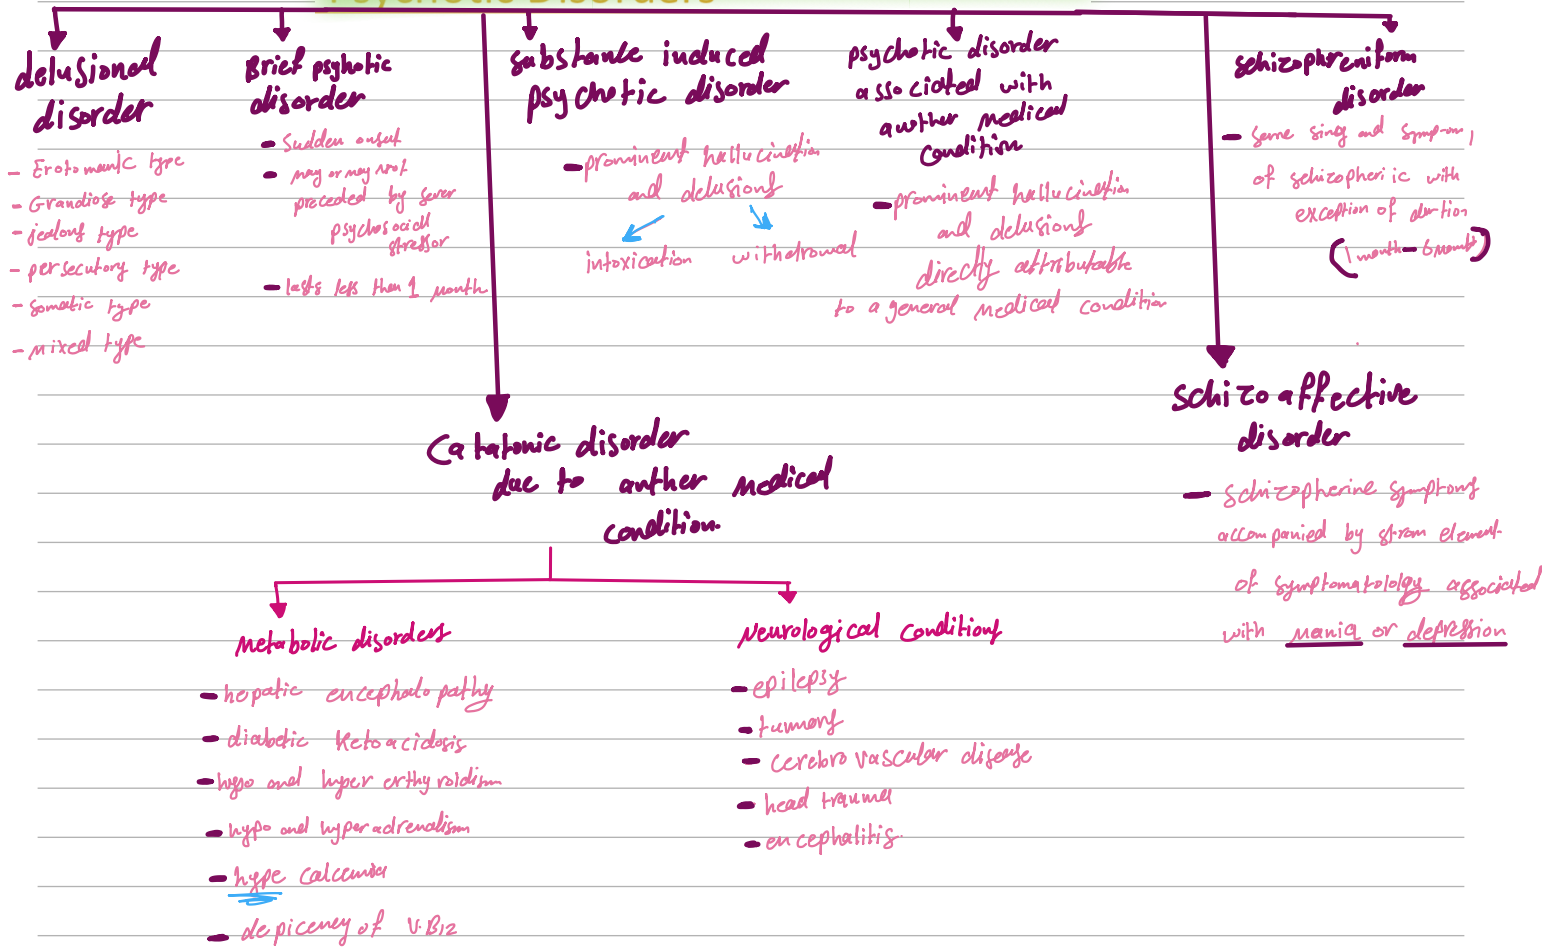 Psychotic Disorders
delusional
disorder
- Erotomantic type
- Grandiose type
- jealous type
- persecutory type
- somatic type
- mixed type
Brief psyhotic
disorder
- Sudden onset
- may or may not
preceded by sever
psychosocial
stressor
- lasts less then 1 month
substance induced
psychotic disorder
- prominent hallucination
and delusions
intoxication withdrowal
psychotic disorder
associated with
another medical
condition
- prominent hallucination
and delusions
directly attributable
to a general medical condition
schizophreniform
disorder
- same sing and symptom,
of schizopheric with
exception of durtion
(1 month - 6 month)
schizoaffective
disorder
- schizopherine symptoms
accompanied by strom element
of symptomatololgy associated
with mania or depression
Catatonic disorder
due to anther medical
condition.
Metabolic disorders
- hepatic encephalopathy
- diabetic Ketoacidosis
- hypo and hyper erthyroidism
- hypo and hyperadrenalism
- hype calcemia
- depiceney of V.B12
Neurological conditions
- epilepsy
- tumors
- cerebrovascular disease
- head trauma
- encephalitis.